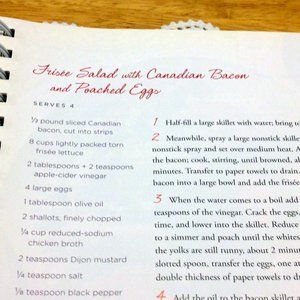 Frisée Salad with Canadian Bacon
and Poached Eggs
SERVES 4
½ pound sliced Canadian
bacon, cut into strips
8 cups lightly packed torn
frisée lettuce
2 tablespoons + 2 teaspoons
apple-cider vinegar
4 large eggs
1 tablespoon olive oil
2 shallots, finely chopped
¼ cup reduced-sodium
chicken broth
2 teaspoons Dijon mustard
¼ teaspoon salt
⅛ teaspoon black pepper
1 Half-fill a large skillet with water; bring to
2 Meanwhile, spray a large nonstick skille
nonstick spray and set over medium heat. A
the bacon; cook, stirring, until browned, a
minutes. Transfer to paper towels to drain.
bacon into a large bowl and add the frisé
3 When the water comes to a boil add
teaspoons of the vinegar. Crack the eggs
time, and lower into the skillet. Reduce
to a simmer and poach until the whites
the yolks are still runny, about 2 minut
slotted spoon, transfer the eggs, one a
double thickness of paper towels to d
4 Add the oil to the bacon skillet a